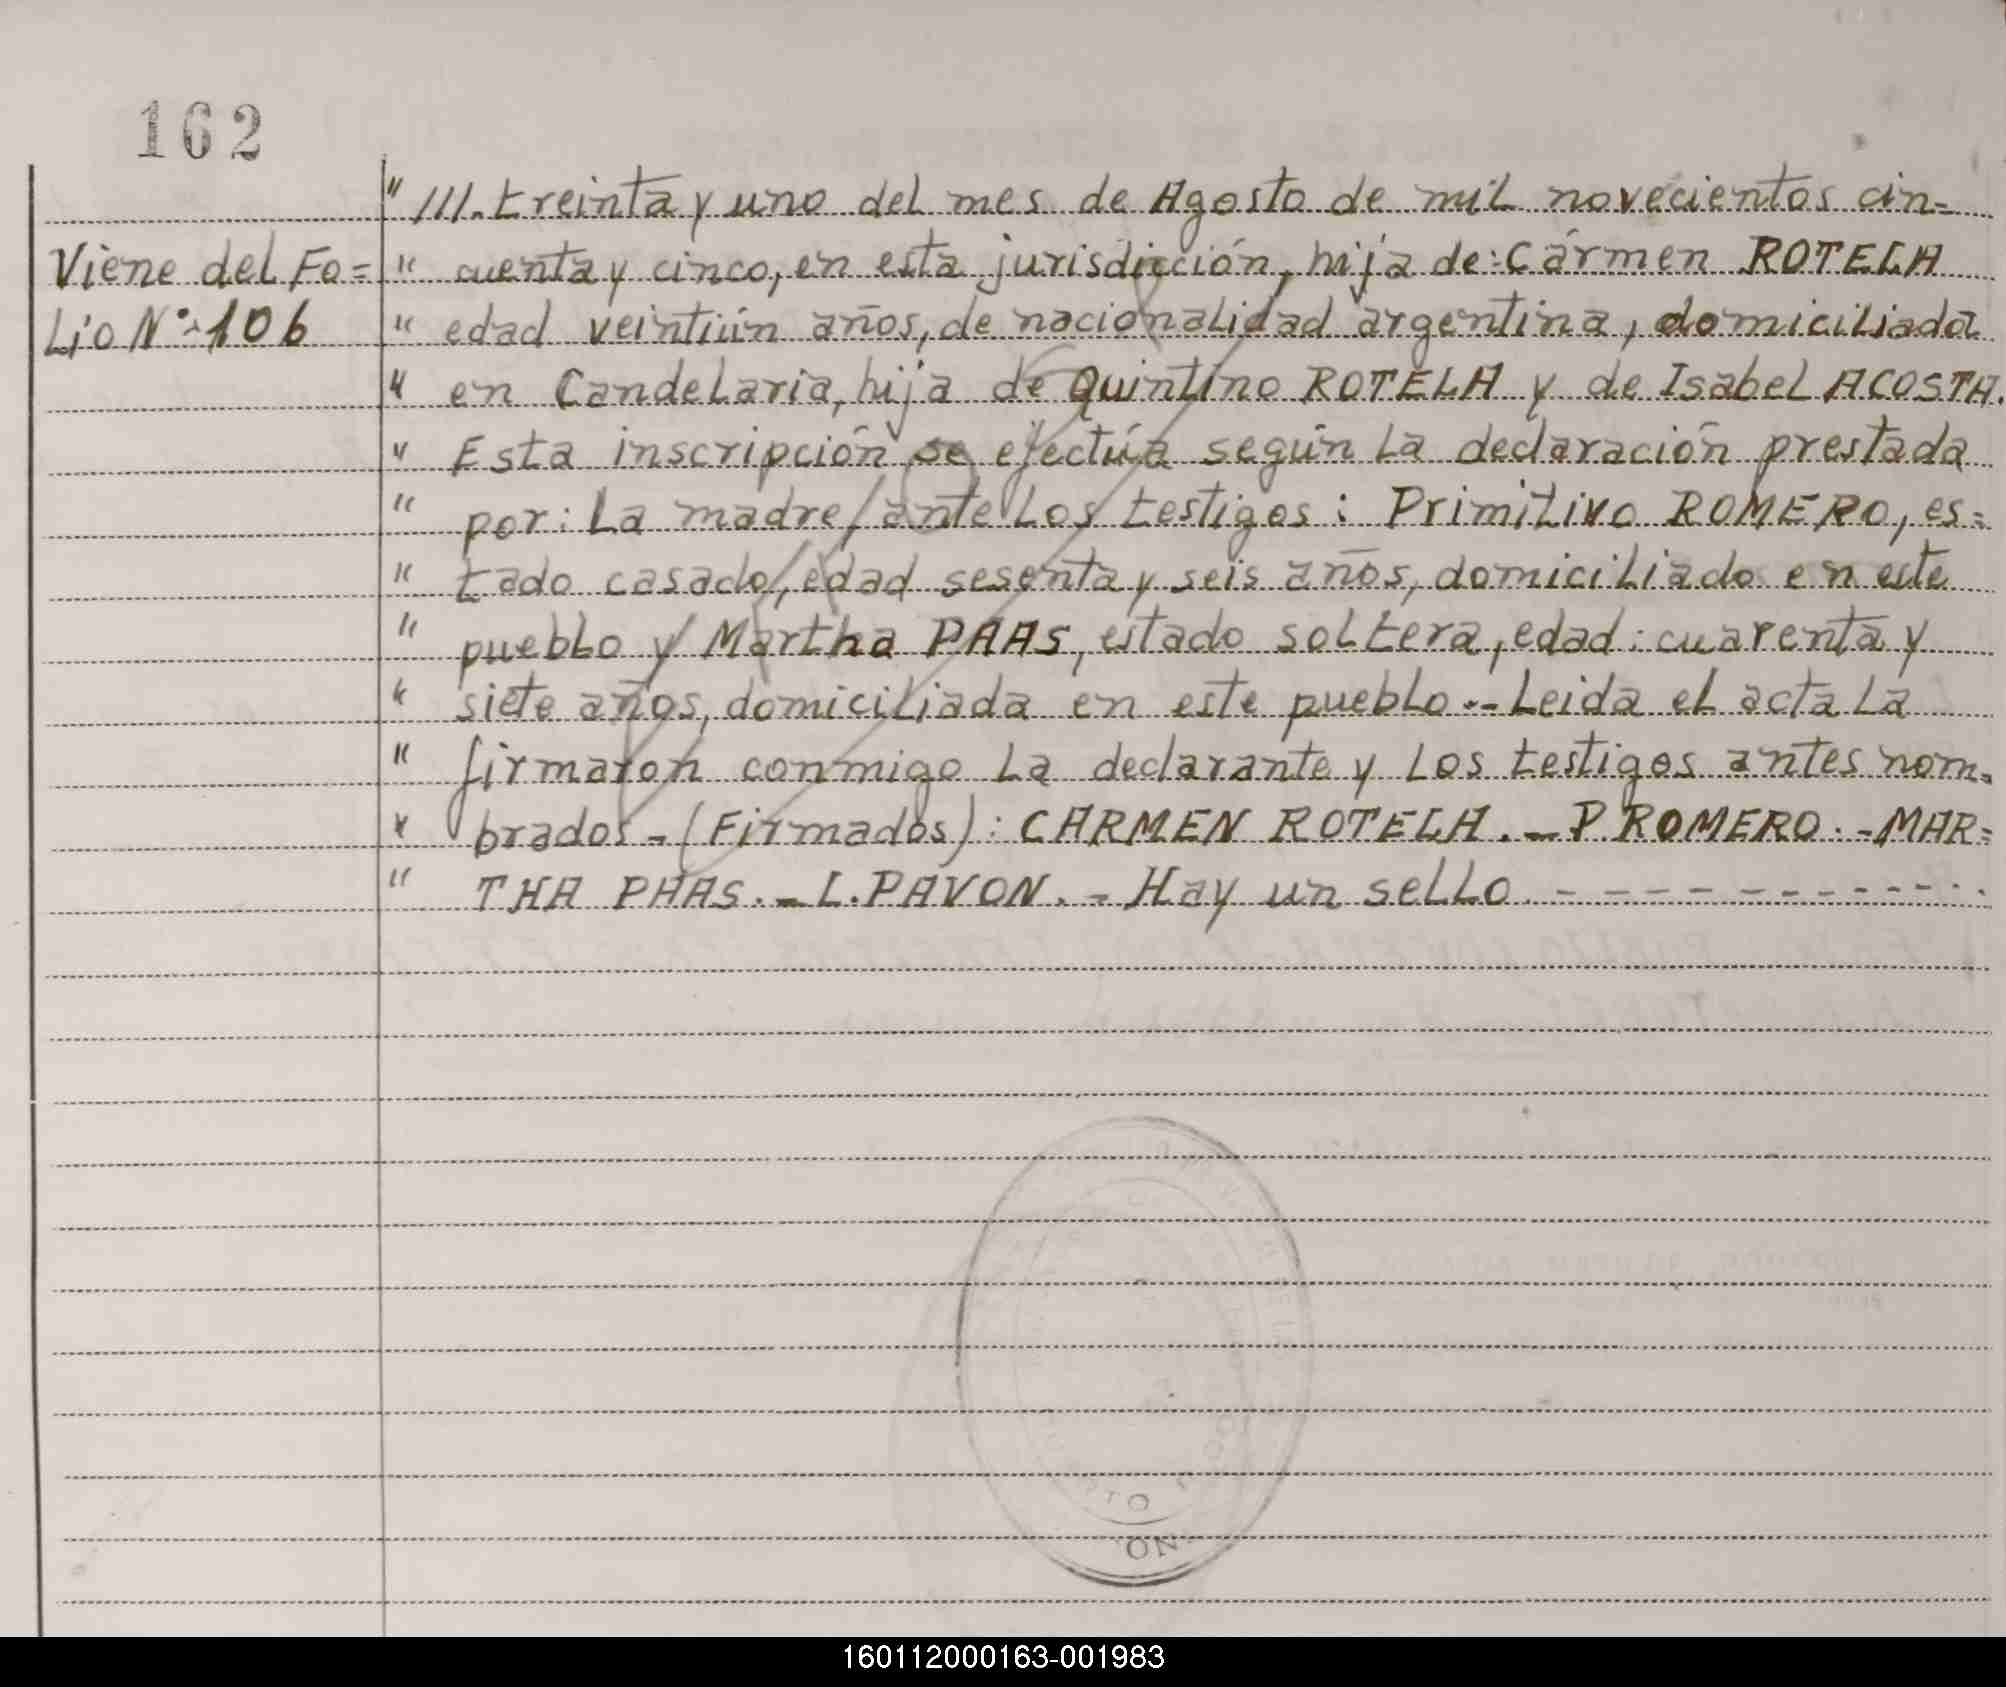 162
" ///.treinta y uno del mes de Agosto de mil novecientos cin=
Viene del Fo=
" cuenta y cinco, en esta jurisdicción, hija de: Cármen ROTELA
Lio Nº 106
" edad veintiún años, de nacionalidad argentina, domiciliada
" en Candelaria, hija de Quintino ROTELA y de Isabel ACOSTA.
" Esta inscripción se efectúa según la declaración prestada
" por: La madre, ante los testigos: Primitivo ROMERO, es=
" tado casado, edad sesenta y seis años, domiciliado en este
" pueblo y Martha PAAS, estado soltera, edad: cuarenta y
" siete años, domiciliada en este pueblo.-- Leida el acta la
" firmaron conmigo la declarante y los testigos antes nom=
" brados - (Firmados): CARMEN ROTELA. - P ROMERO. - MAR=
" THA PAAS. - L. PAVON. - Hay un sello - - - - - - - - - - - - -
160112000163-001983